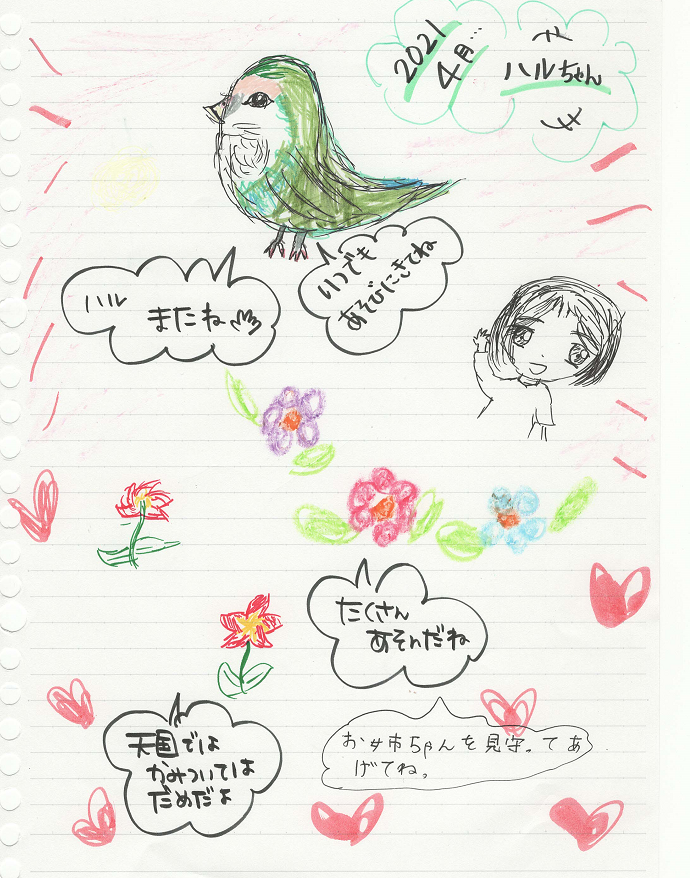 2021
4月…
ハルちゃん
ハル
またね
いつでも
あそびにきてね
たくさん
あそんだね
天国では
かみついては
だめだよ
お姉ちゃんを見守ってあ
げてね。